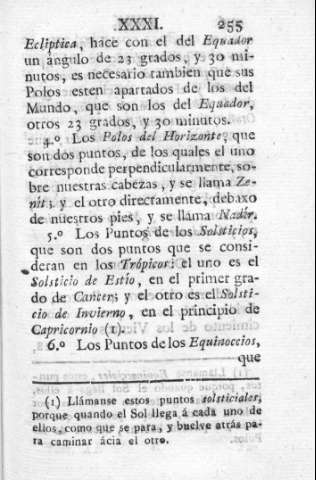 XXXI. 255
Ecliptica, hace con el del Equador
un angulo de 23 grados, y 30 mi-
nutos, es necesario tambien que sus
Polos esten apartados de los del
Mundo, que son los del Equador,
otros 23 grados, y 30 minutos.
4.º Los Polos del Horizonte, que
son dos puntos, de los quales el uno
corresponde perpendicularmente, so-
bre nuestras cabezas, y se llama Ze-
nit; y el otro directamente, debaxo
de nuestros pies, y se llama Nadir.
5.º Los Puntos de los Solsticios,
que son dos puntos que se consi-
deran en los Trópicos: el uno es el
Solsticio de Estío, en el primer gra-
do de Cancer; y el otro es el Solsti-
cio de Invierno, en el principio de
Capricornio (1).
6.º Los Puntos de los Equinoccios,
que
(1) Llámanse estos puntos solsticiales,
porque quando el Sol llega á cada uno de
ellos, como que se para, y buelve atrás pa-
ra caminar ácia el otro.